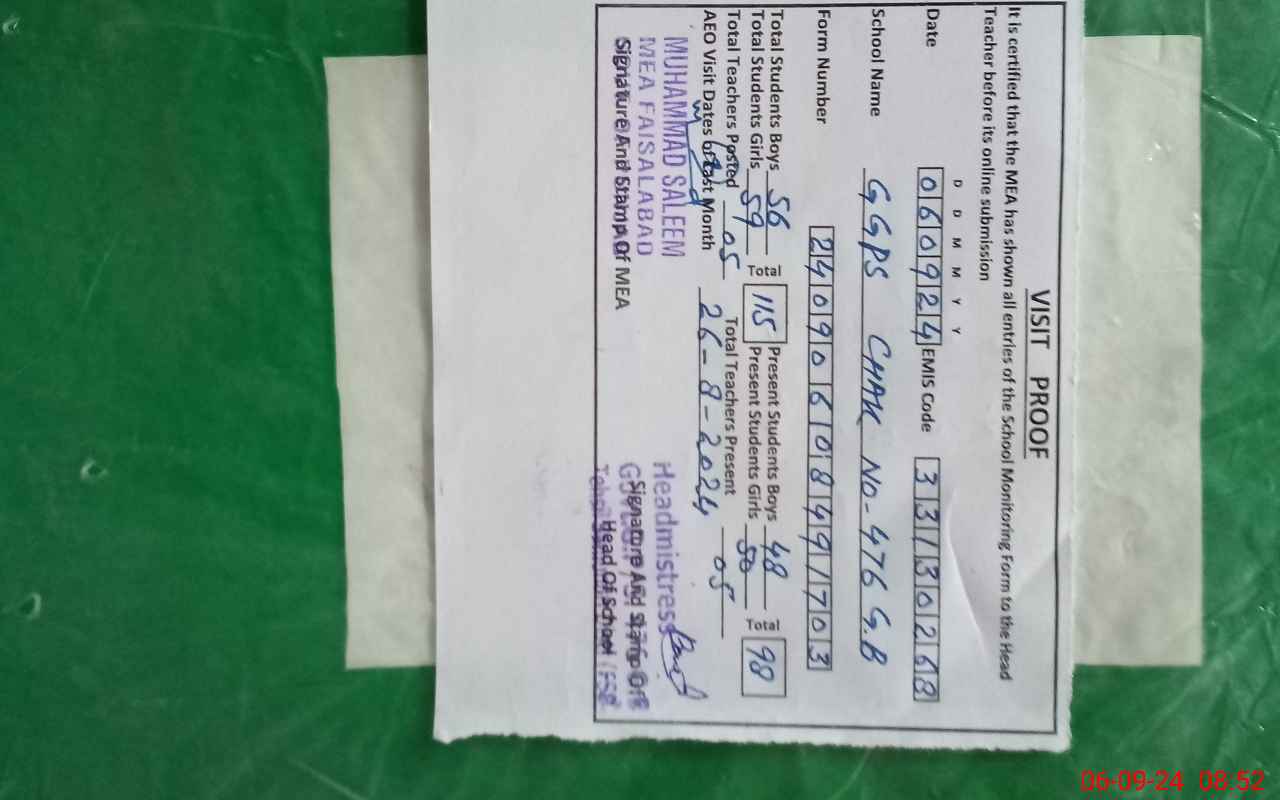 VISIT PROOF
It is certified that the MEA has shown all entries of the School Monitoring Form to the Head
Teacher before its online submission
D D M M Y Y
Date 060924 EMIS Code 33130268
School Name GGPS CHAK NO-476 G.B
Form Number 24090608491703
Total Students Boys 56 Total 115 Present Students Boys 48 Total 98
Total Students Girls 59 Present Students Girls 50
Total Teachers Posted 05 Total Teachers Present 05
AEO Visit Dates of Last Month 26-8-2024
MUHAMMAD SALEEM
MEA FAISALABAD
Signature And Stamp Of MEA
Headmistress
Signature And Stamp Of
Head Of School
06-09-24 08:52